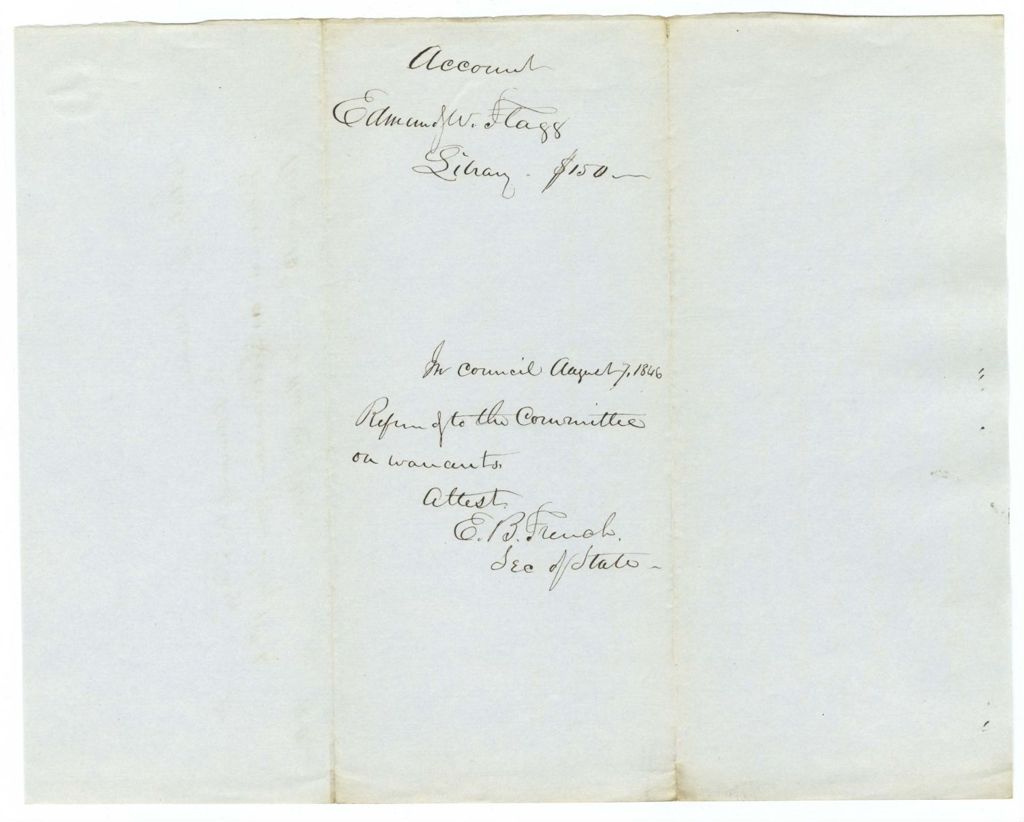 Account
Edmund W. Flagg
Library. $150—
In Council August 7, 1846
Referred to the Committee
on warrants.
Attest.
E. B. French.
Sec of State—